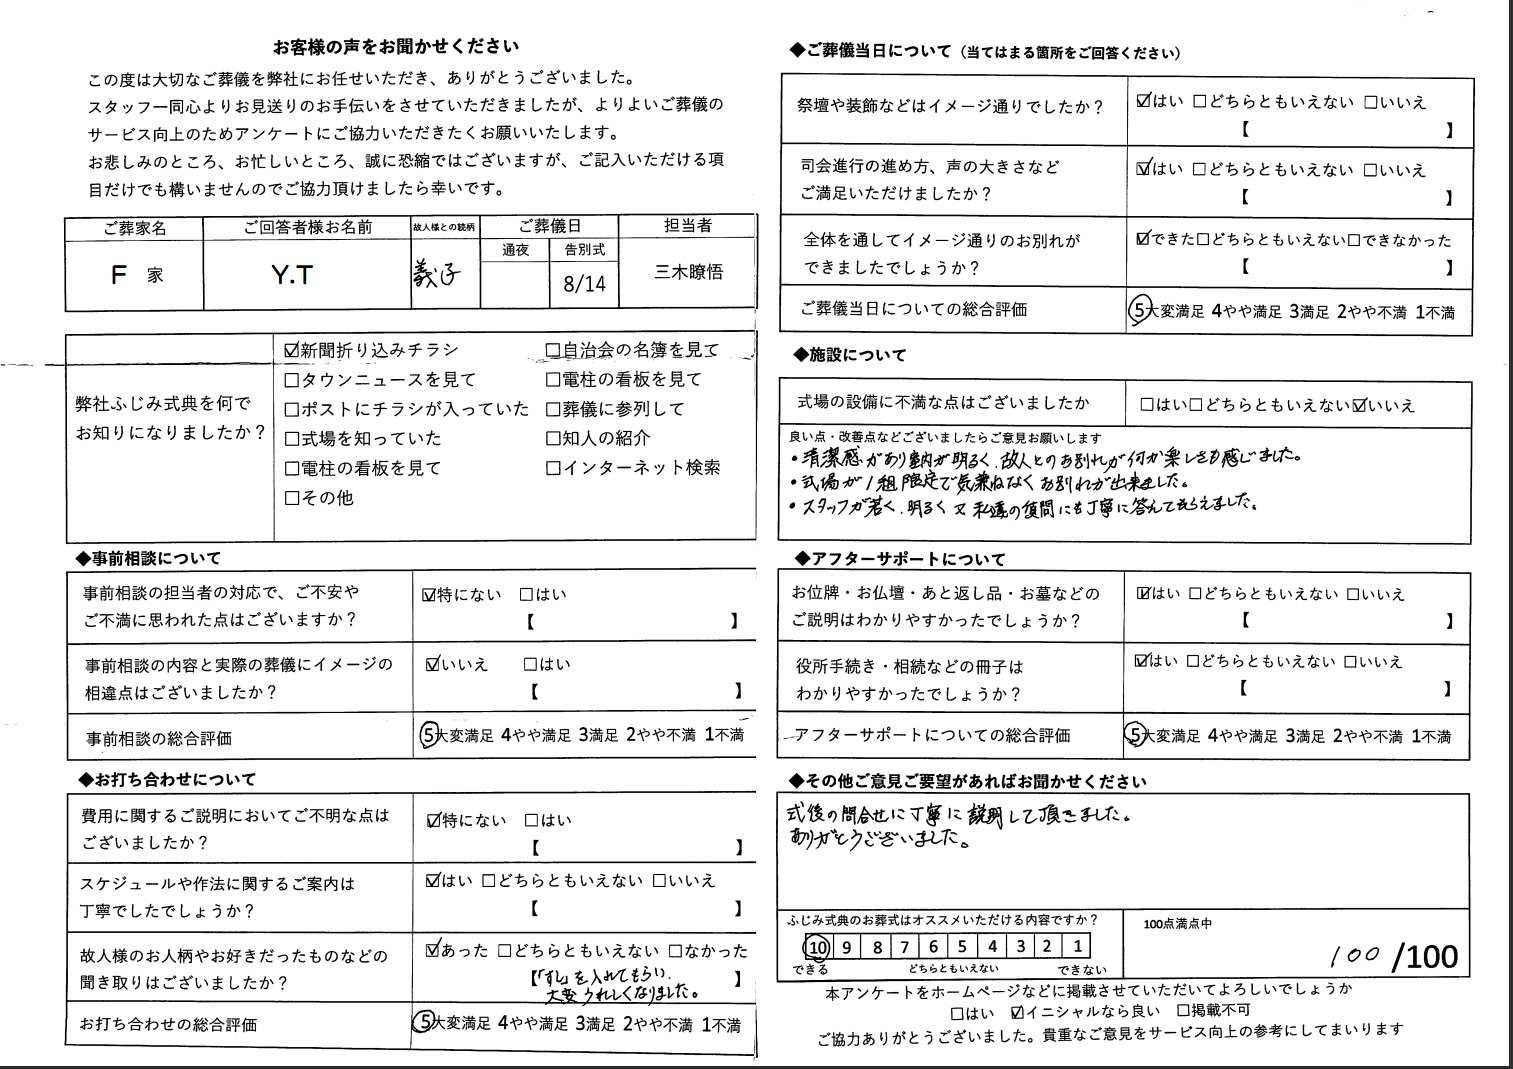 お客様の声をお聞かせください
この度は大切なご葬儀を弊社にお任せいただき、ありがとうございました。
スタッフ一同心よりお見送りのお手伝いをさせていただきましたが、よりよいご葬儀の
サービス向上のためアンケートにご協力いただきたくお願いいたします。
お悲しみのところ、お忙しいところ、誠に恐縮ではございますが、ご記入いただける項
目だけでも構いませんのでご協力頂けましたら幸いです。
ご葬家名 ご回答者様お名前 故人様との続柄 ご葬儀日 担当者
通夜 告別式
F 家 Y.T 義子 8/14 三木瞭悟
弊社ふじみ式典を何で
お知りになりましたか？
☑新聞折り込みチラシ □自治会の名簿を見て
□タウンニュースを見て □電柱の看板を見て
□ポストにチラシが入っていた □葬儀に参列して
□式場を知っていた □知人の紹介
□電柱の看板を見て □インターネット検索
□その他
◆事前相談について
事前相談の担当者の対応で、ご不安や
ご不満に思われた点はございますか？
☑特にない □はい
【 】
事前相談の内容と実際の葬儀にイメージの
相違点はございましたか？
☑いいえ □はい
【 】
事前相談の総合評価 5大変満足 4やや満足 3満足 2やや不満 1不満
◆お打ち合わせについて
費用に関するご説明においてご不明な点は
ございましたか？
☑特にない □はい
【 】
スケジュールや作法に関するご案内は
丁寧でしたでしょうか？
☑はい □どちらともいえない □いいえ
【 】
故人様のお人柄やお好きだったものなどの
聞き取りはございましたか？
☑あった □どちらともいえない □なかった
【「すし」を入れてもらい、 】
大変うれしくなりました。
お打ち合わせの総合評価 5大変満足 4やや満足 3満足 2やや不満 1不満
◆ご葬儀当日について（当てはまる箇所をご回答ください）
祭壇や装飾などはイメージ通りでしたか？ ☑はい □どちらともいえない □いいえ
【 】
司会進行の進め方、声の大きさなど
ご満足いただけましたか？
☑はい □どちらともいえない □いいえ
【 】
全体を通してイメージ通りのお別れが
できましたでしょうか？
☑できた□どちらともいえない□できなかった
【 】
ご葬儀当日についての総合評価 5大変満足 4やや満足 3満足 2やや不満 1不満
◆施設について
式場の設備に不満な点はございましたか □はい□どちらともいえない☑いいえ
良い点・改善点などございましたらご意見お願いします
・清潔感があり室内が明るく、故人とのお別れが何か楽しさも感じました。
・式場が1組限定で気兼ねなくお別れが出来ました。
・スタッフが若く、明るく又私達の質問にも丁寧に答えてもらえました。
◆アフターサポートについて
お位牌・お仏壇・あと返し品・お墓などの
ご説明はわかりやすかったでしょうか？
☑はい □どちらともいえない □いいえ
【 】
役所手続き・相続などの冊子は
わかりやすかったでしょうか？
☑はい □どちらともいえない □いいえ
【 】
アフターサポートについての総合評価 5大変満足 4やや満足 3満足 2やや不満 1不満
◆その他ご意見ご要望があればお聞かせください
式後の問合せに丁寧に説明して頂きました。
ありがとうございました。
ふじみ式典のお葬式はオススメいただける内容ですか？
10 9 8 7 6 5 4 3 2 1
できる どちらともいえない できない
100点満点中
100 /100
本アンケートをホームページなどに掲載させていただいてよろしいでしょうか
□はい ☑イニシャルなら良い □掲載不可
ご協力ありがとうございました。貴重なご意見をサービス向上の参考にしてまいります